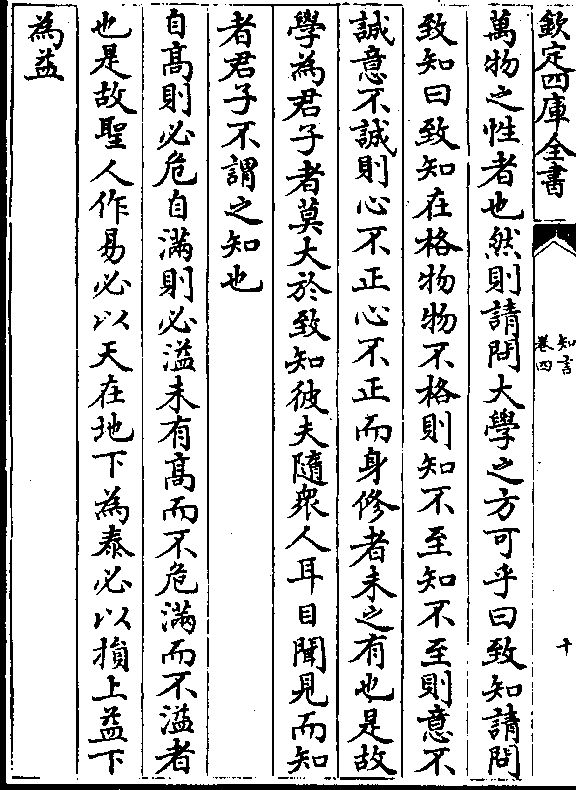 欽定四庫全書
知言
卷四
十
萬物之性者也然則請問大學之方可乎曰致知請問
致知曰致知在格物物不格則知不至知不至則意不
誠意不誠則心不正心不正而身修者未之有也是故
學為君子者莫大於致知彼夫隨衆人耳目聞見而知
者君子不謂之知也
自髙則必危自滿則必溢未有髙而不危滿而不溢者
也是故聖人作易必以天在地下為泰必以損上益下
為益